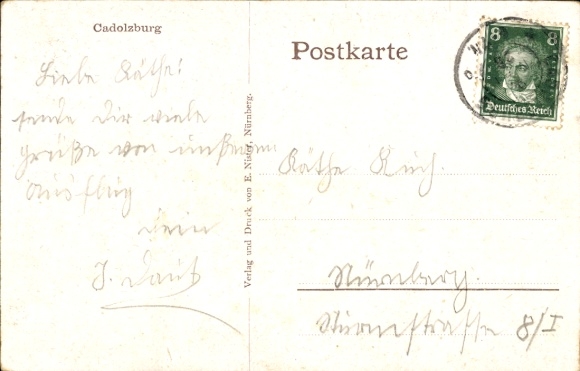 Cadolzburg
Postkarte
8 8
Deutsches Reich
Liebe Käthe!
sende Dir viele
Grüße von unserem
Ausflug
Dein
J.
Verlag und Druck von E. Nister, Nürnberg.
Käthe Kuch.
Nürnberg.
8/I